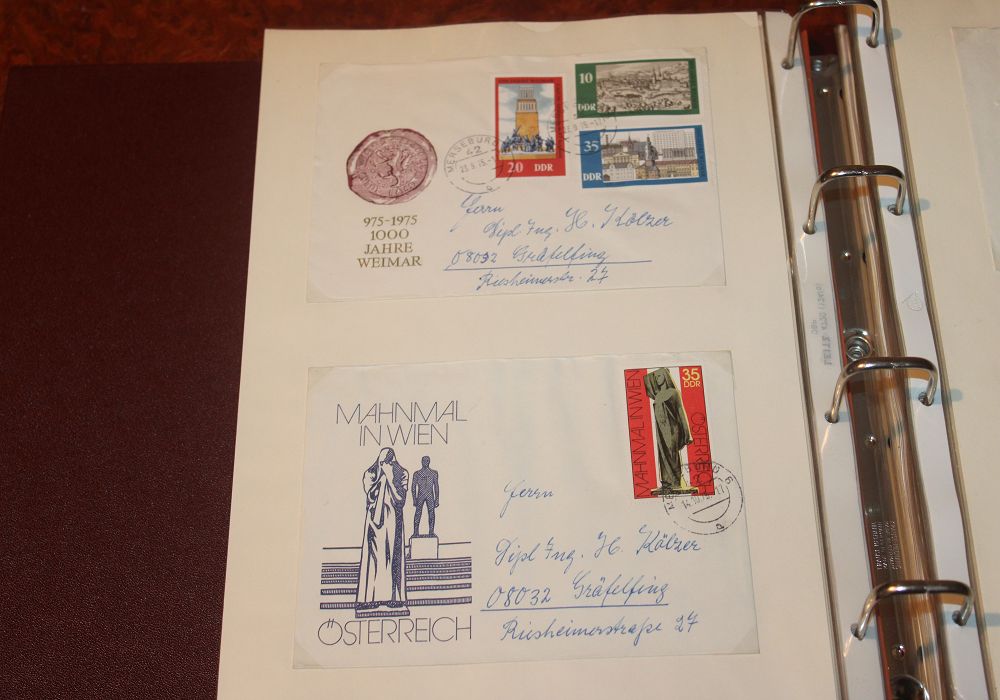 10
DDR
20 DDR
35
MERSEBURG
42
975-1975
1000
JAHRE
WEIMAR
Herrn
Dipl Ing. H. Kölzer
08032 Gräfelfing
Riesheimerstr. 27
MAHNMAL
IN WIEN
ÖSTERREICH
35
DDR
MAHNMAL IN WIEN
ÖSTERREICH
Herrn
Dipl Ing. H. Kölzer
08032 Gräfelfing
Riesheimerstraße 27